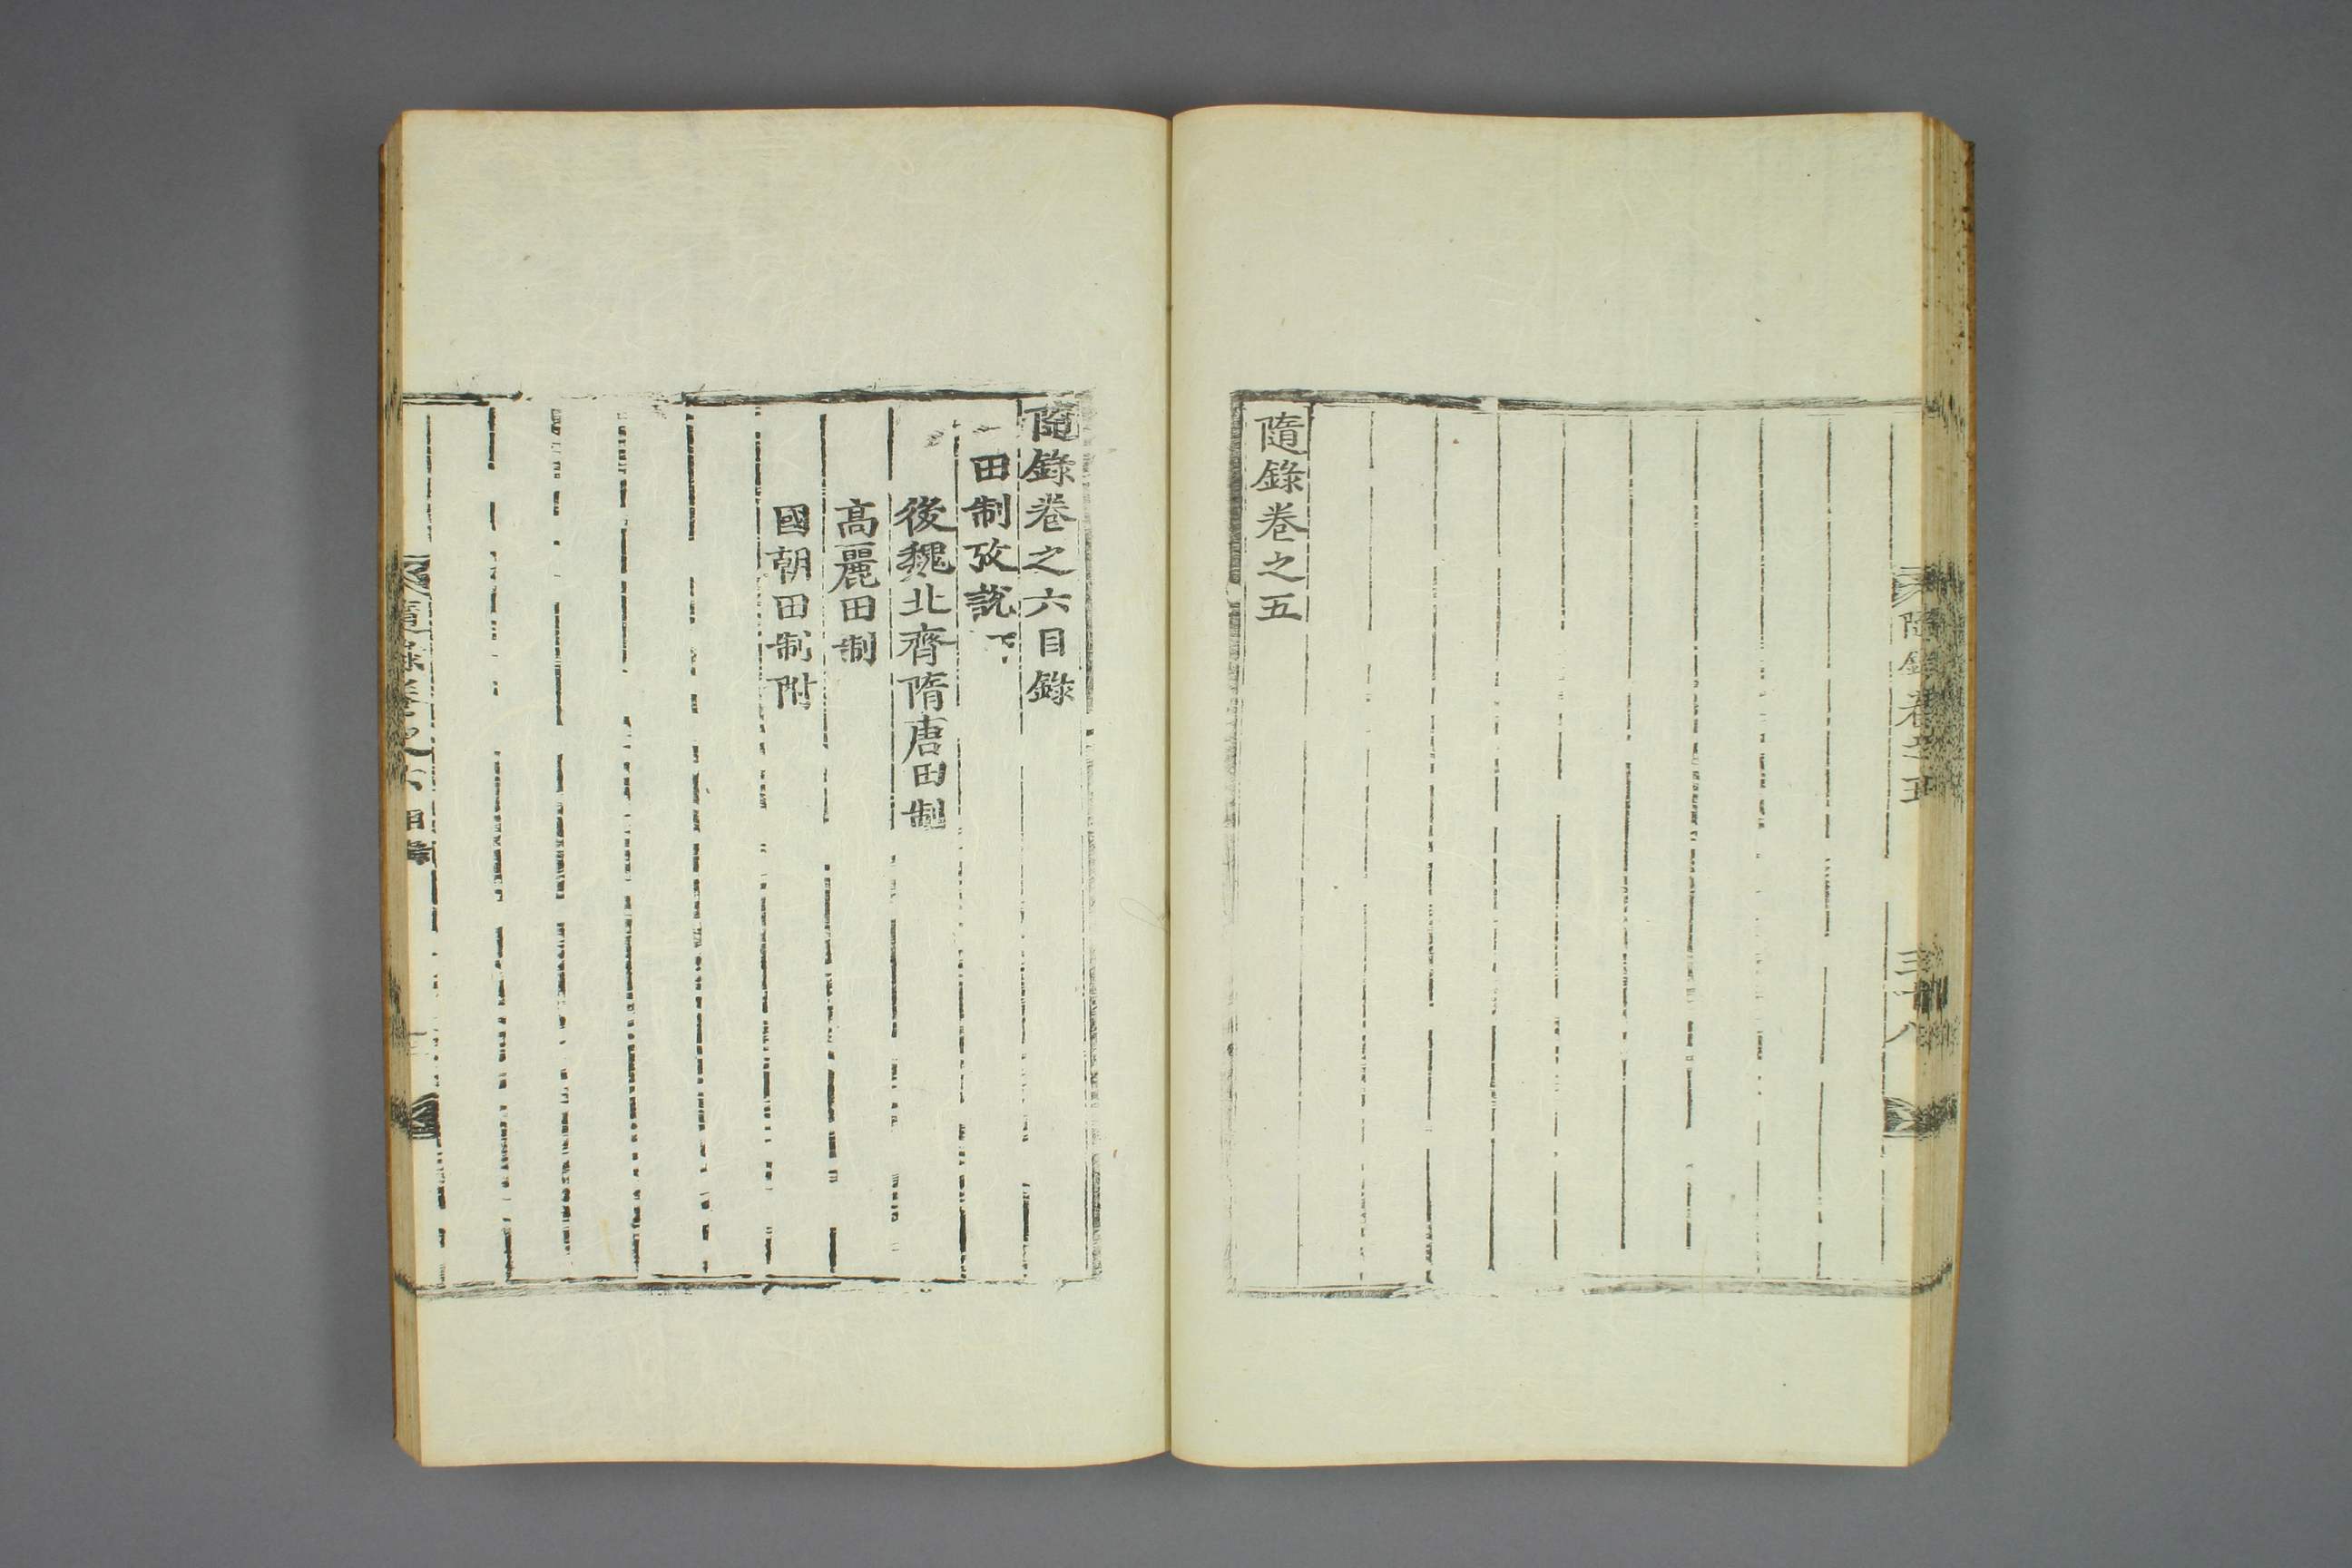 隨錄卷之五
三十八
隨錄卷之五
隨錄卷之六目錄
一田制攷說下
後魏北齊隋唐田制
高麗田制
國朝田制附
隨錄卷之六目錄
一